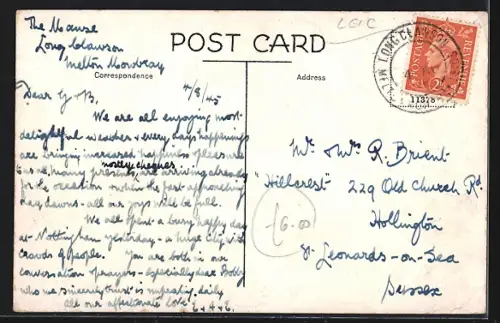 The Manse
Long Clawson
Melton Mowbray
LEIC
POST CARD
Correspondence
Address
LONG CLAWSON
POSTAGE
REVENUE
11378
4/8/45
Dear G & B,
We are all enjoying most
delightful weather & every days happenings
are bringing increased happiness & pleasure
mostly cheques.
& as well many presents are arriving already
for the occasion & when the fast approaching
day dawns - all our joys will be full.
We all spent a busy happy day
at Nottingham yesterday - a huge City with
crowds of people. You are both in our
conversation & prayers - especially dear Bobby
who we sincerely trust is improving daily
All our affectionate love
Mr & Mrs R. Brient
"Hillcrest" 229 Old Church Rd
Hollington
St Leonards-on-Sea
Sussex
£6.00